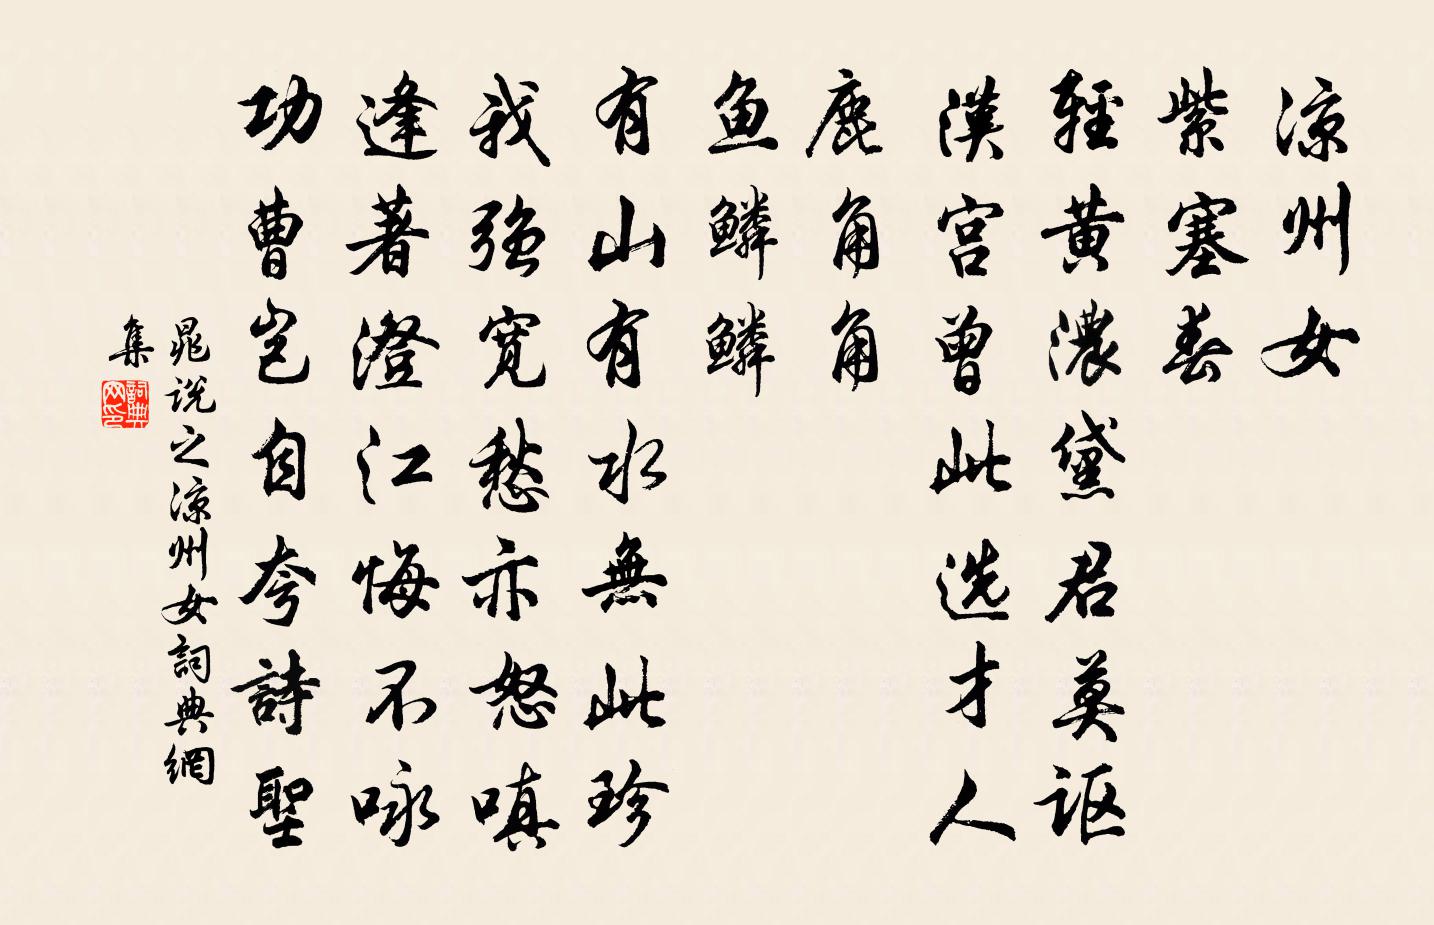 涼州女
紫塞春
輕黃濃黛君莫謳
漢宮曾此选才人
鹿角角
鱼鱗鱗
有山有水無此珍
我強寬愁亦怒嗔
逢著澄江悔不咏
功曹豈自夸詩聖
晁說之涼州女詞典網
集
詞典
网印